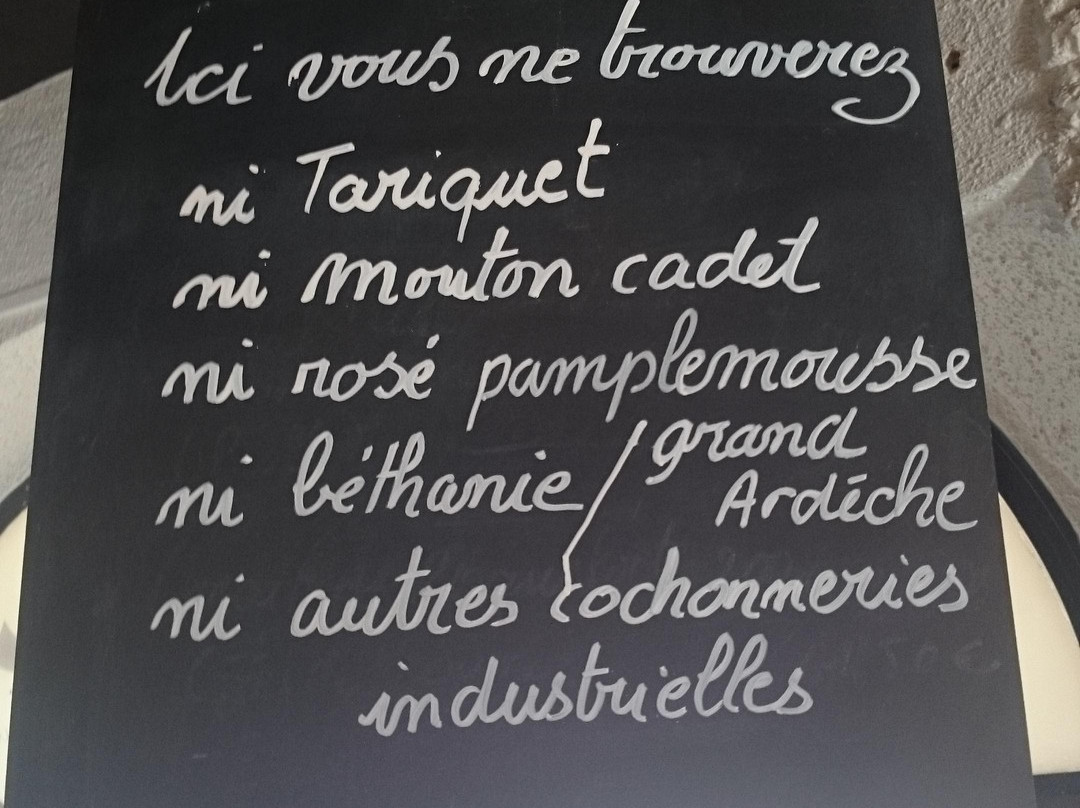 Ici vous ne trouverez
ni Tariquet
ni mouton cadet
ni rosé pamplemousse
ni béthanie / grand
Ardèche
ni autres cochonneries
industrielles